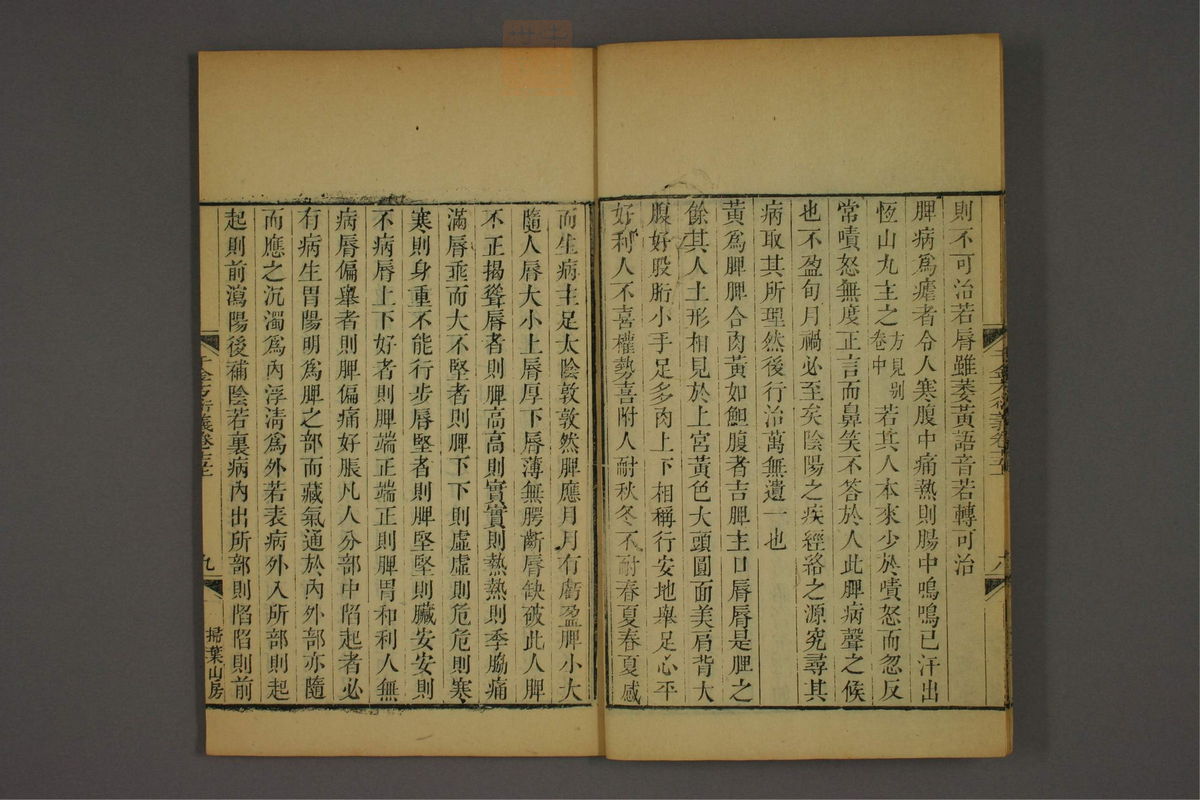 則不可治若唇雖萎黃語音若轉可治
脾病為瘧者令人寒腹中痛熱則腸中鳴鳴已汗出
恆山丸主之方見別卷中若其人本來少於嗔怒而忽反
常嗔怒無度正言而鼻笑不答於人此脾病聲之候
也不盈旬月禍必至矣陰陽之疾經絡之源究尋其
病取其所理然後行治萬無遺一也
黃為脾脾合肉黃如䱇腹者吉脾主口唇唇是脾之
餘其人土形相見於上宮黃色大頭圓面美肩背大
腹好股胻小手足多肉上下相稱行安地舉足心平
好利人不喜權勢喜附人耐秋冬不耐春夏春夏感
而生病主足太陰敦敦然脾應月月有虧盈脾小大
隨人唇大小上唇厚下唇薄無腭齗唇缺破此人脾
不正揭聳唇者則脾高高則實實則熱熱則季脇痛
滿唇垂而大不堅者則脾下下則虛虛則危危則寒
寒則身重不能行步唇堅者則脾堅堅則臟安安則
不病唇上下好者則脾端正端正則脾胃和利人無
病唇偏舉者則脾偏痛好脹凡人分部中陷起者必
有病生胃陽明為脾之部而藏氣通於內外部亦隨
而應之沉濁為內浮淸為外若表病外入所部則起
起則前瀉陽後補陰若裏病內出所部則陷陷則前
九
掃葉山房